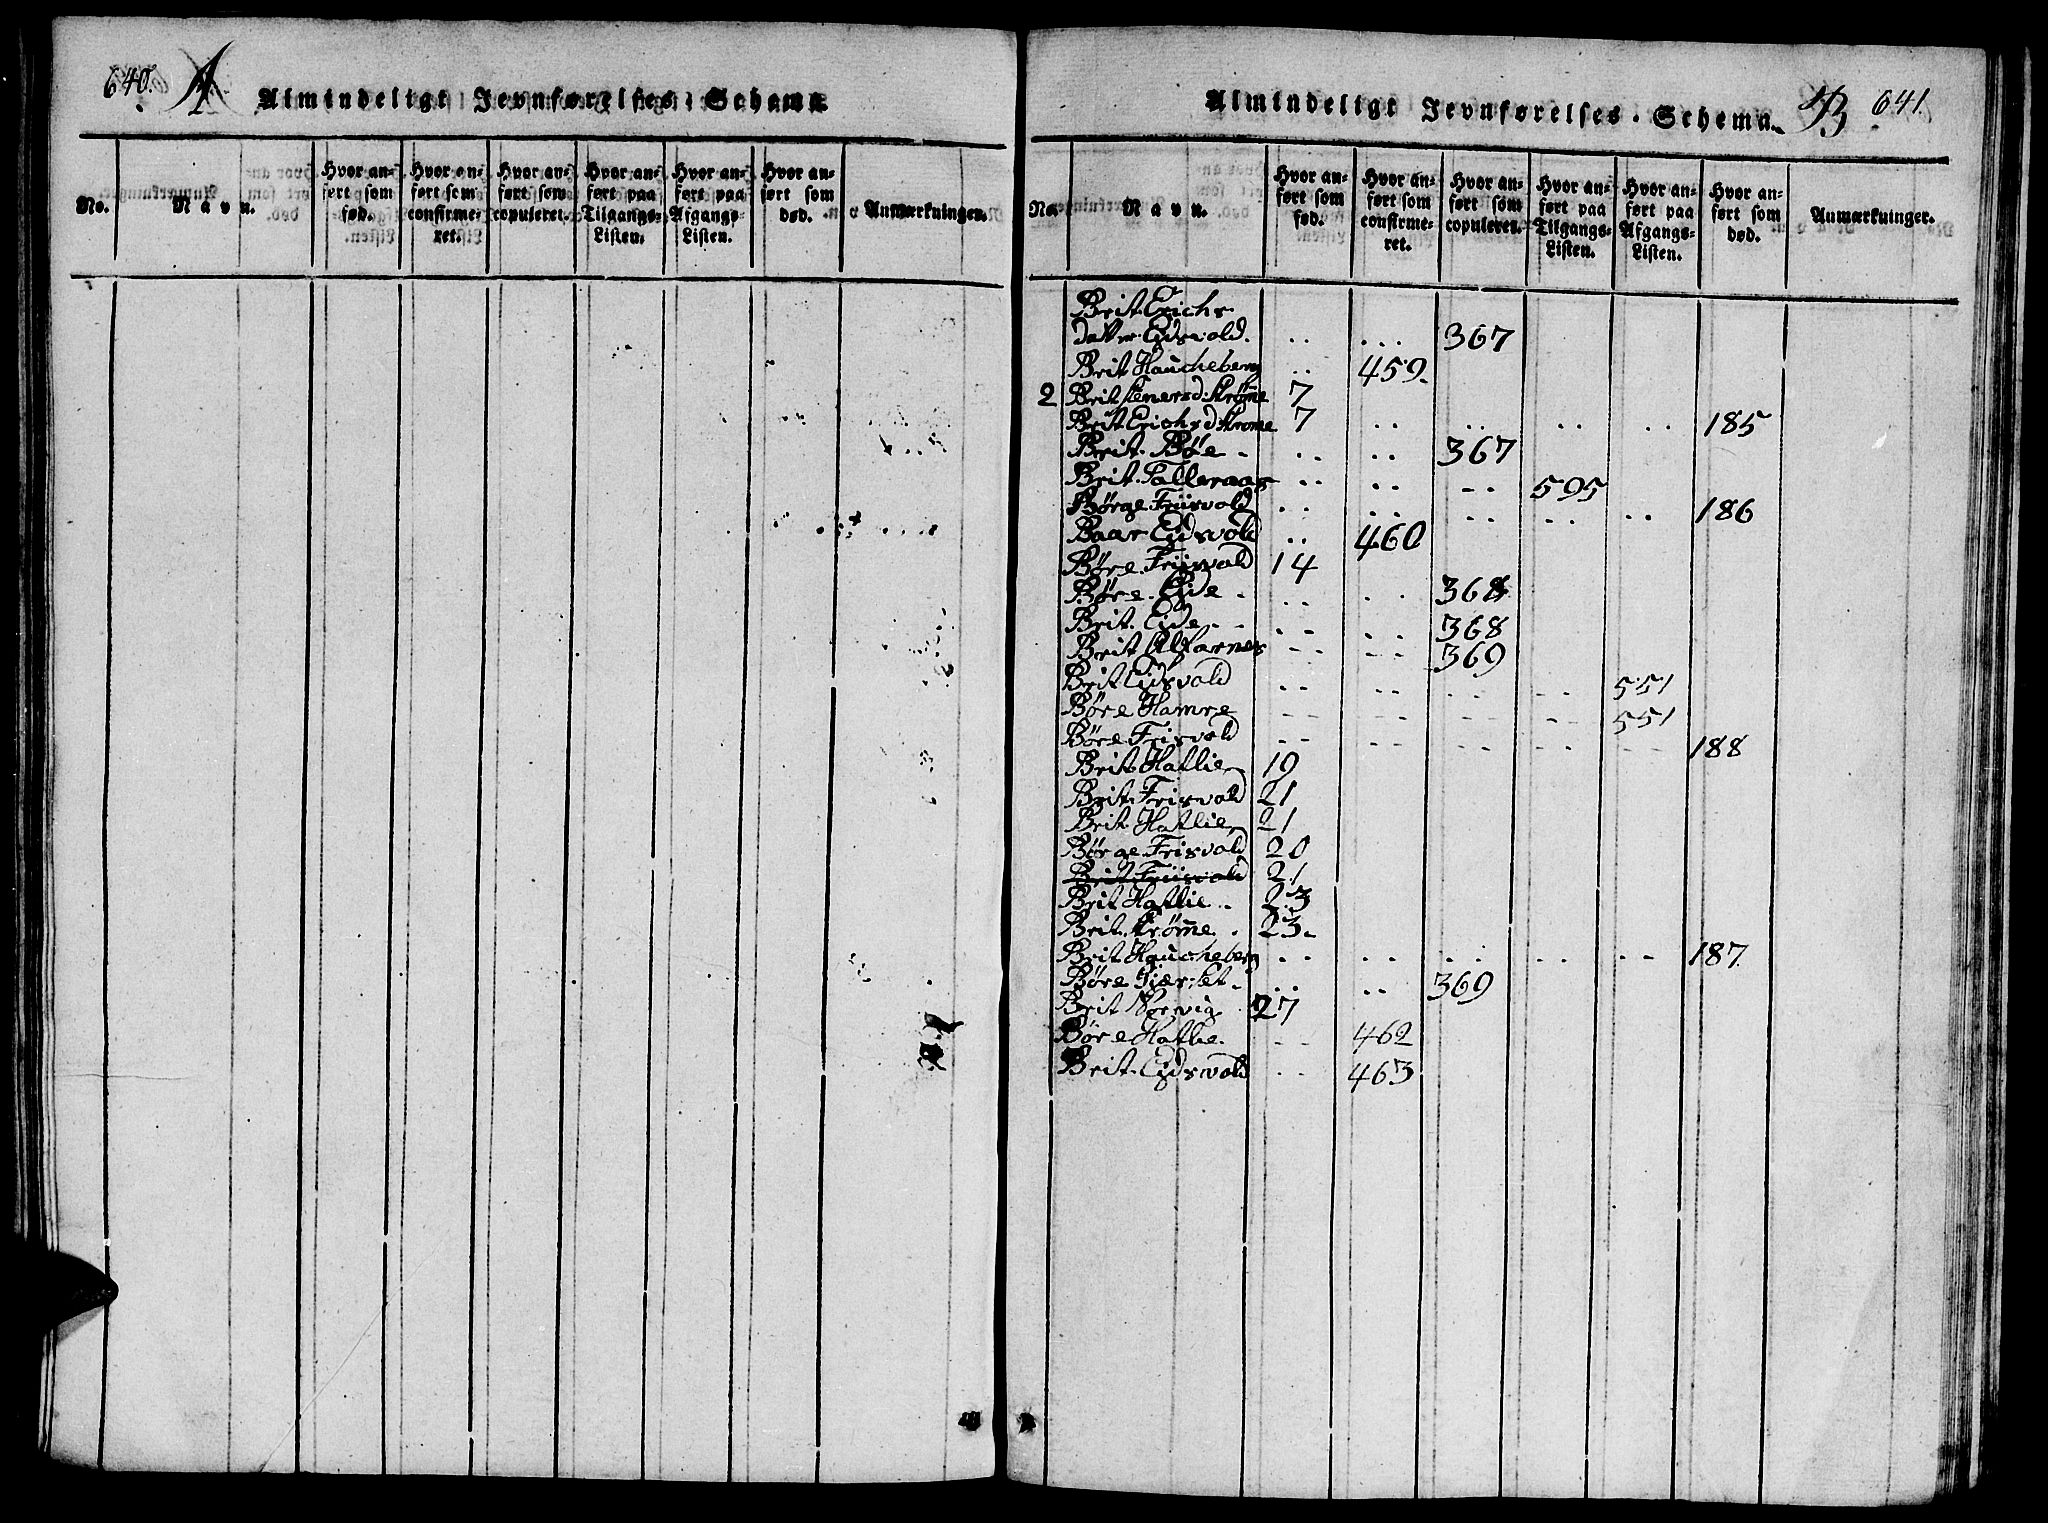 640. A Almindeligt Jevnførelses-Schema
No. Navn. Hvor anført som fød. Hvor anført som confirmeret. Hvor anført som copuleret. Hvor anført paa Tilgangs-Listen. Hvor anført paa Afgangs-Listen. Hvor anført som død. Anmærkninger.
Almindeligt Jevnførelses-Schema. B 641.
No. Navn. Hvor anført som fød. Hvor anført som confirmeret. Hvor anført som copuleret. Hvor anført paa Tilgangs-Listen. Hvor anført paa Afgangs-Listen. Hvor anført som død. Anmærkninger.
Brit Erichs
datter Eidsvold. .. ... 367
Brit Haucheberg .. 459.
2 Brit d: Strøme 7
Brit Erichsd Strome 7 .. .. .. .. 185
Brit. Bøe - .. .. 367
Brit. Talleraas .. .. -- 595
Børge Friisvold .. .. .. .. .. 186
Baar Eidsvold .. 460
Børe. Friisvold 14
Børe. Eide - .. .. 368
Brit. Eide - - .. .. 368
Brit Alfarnes -- -- 369
Brit Eidsvold .. -- -- -- 551
Børe Hamre -- -- -- -- 551
Børe Frisvold -- -- -- -- -- 188
Brit Hatlie 19
Brit. Frisvold 21
Brit. Hatlie 21
Børge Frisvold 20
Brit Friisvold 21
Brit Hatlie - 23
Brit. Strøme - 23.
Brit Haucheberg .. .. .. .. -- 187
Børe Giærset - .. .. 369
Brit Norvig 27
Børe Hatlie. -- 462
Brit. Eidsvold -- 463